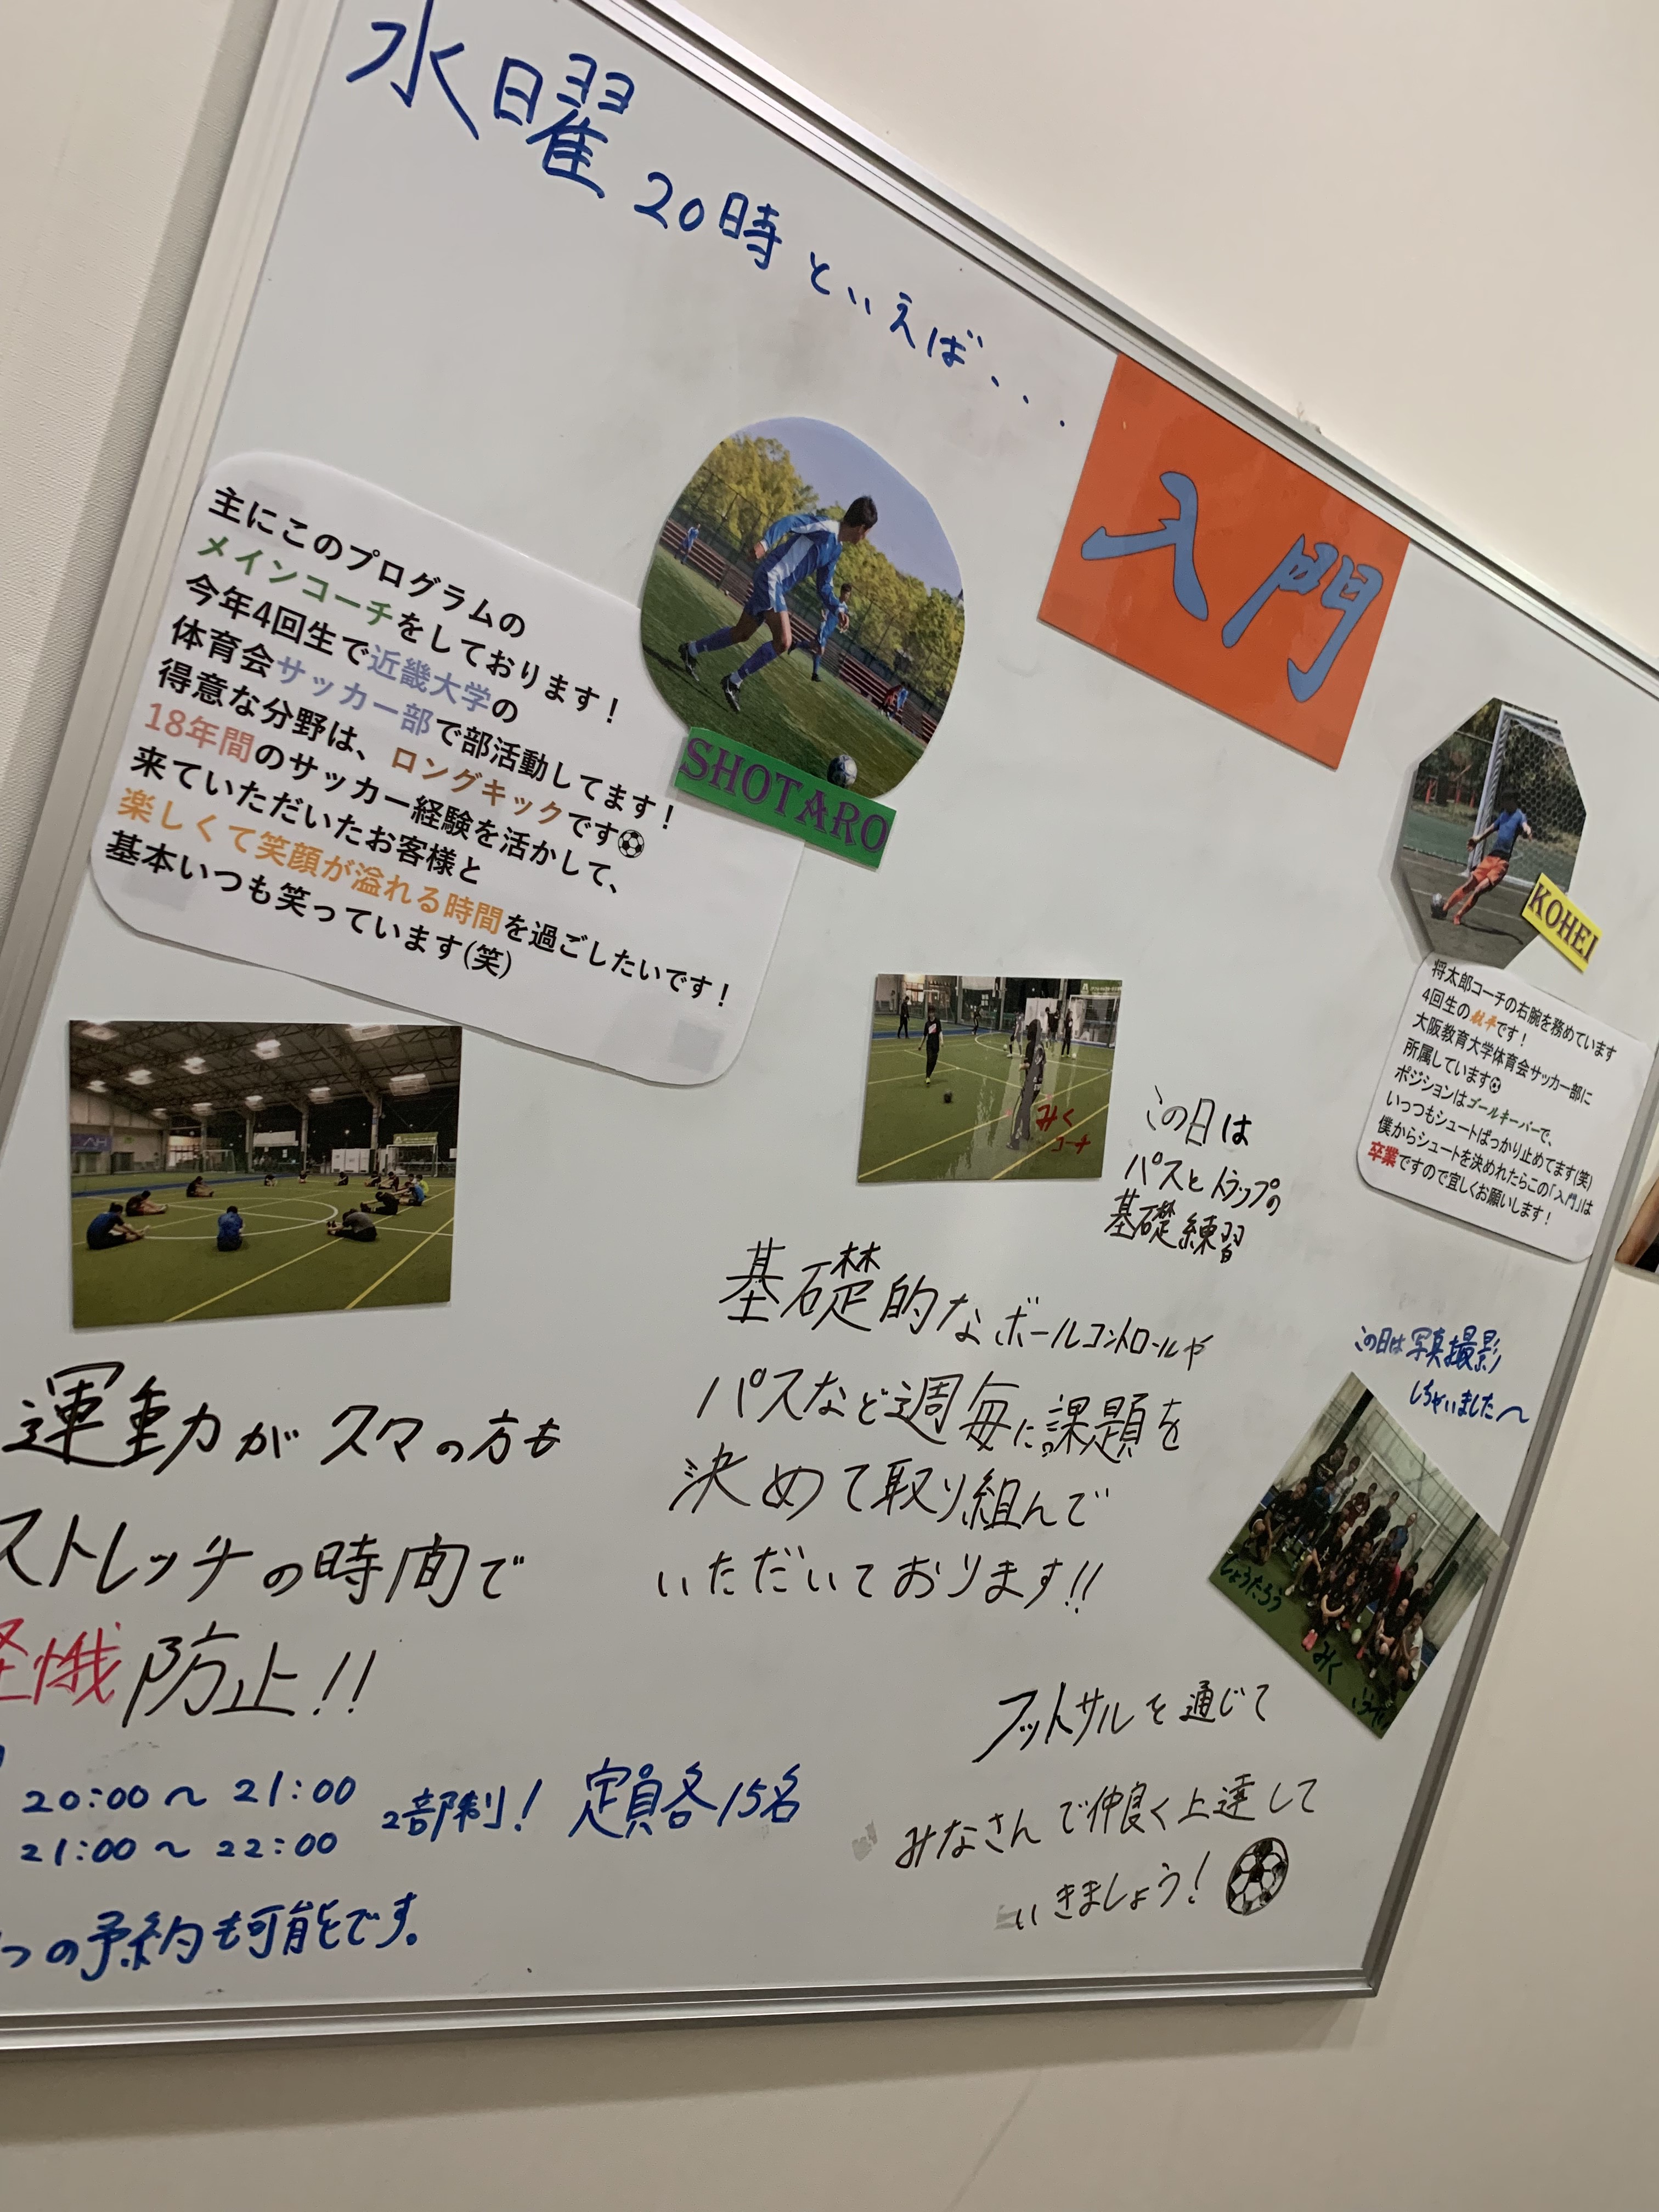 水曜 20時といえば...
入門
主にこのプログラムの
メインコーチをしております！
今年4回生で近畿大学の
体育会サッカー部で部活動してます！
得意な分野は、ロングキックです⚽
18年間のサッカー経験を活かして、
来ていただいたお客様と
楽しくて笑顔が溢れる時間を過ごしたいです！
基本いつも笑っています(笑)
SHOTARO
KOHEI
将太郎コーチの右腕を務めています
4回生の航平です！
大阪教育大学体育会サッカー部に
所属しています⚽
ポジションはゴールキーパーで、
いっつもシュートばっかり止めてます(笑)
僕からシュートを決めれたらこの「入門」は
卒業ですので宜しくお願いします！
みく
コーチ
この日は
パスとトラップの
基礎練習
運動がヌマの方も
ストレッチの時間で
怪我防止!!
基礎的なボールコントロールや
パスなど週毎に課題を
決めて取り組んで
いただいております!!
この日は写真撮影
しちゃいました〜
しょうたろう
みく
20:00〜21:00
21:00〜22:00
2部制！ 定員各15名
つの予約も可能です。
フットサルを通じて
みなさんで仲良く上達して
いきましょう！